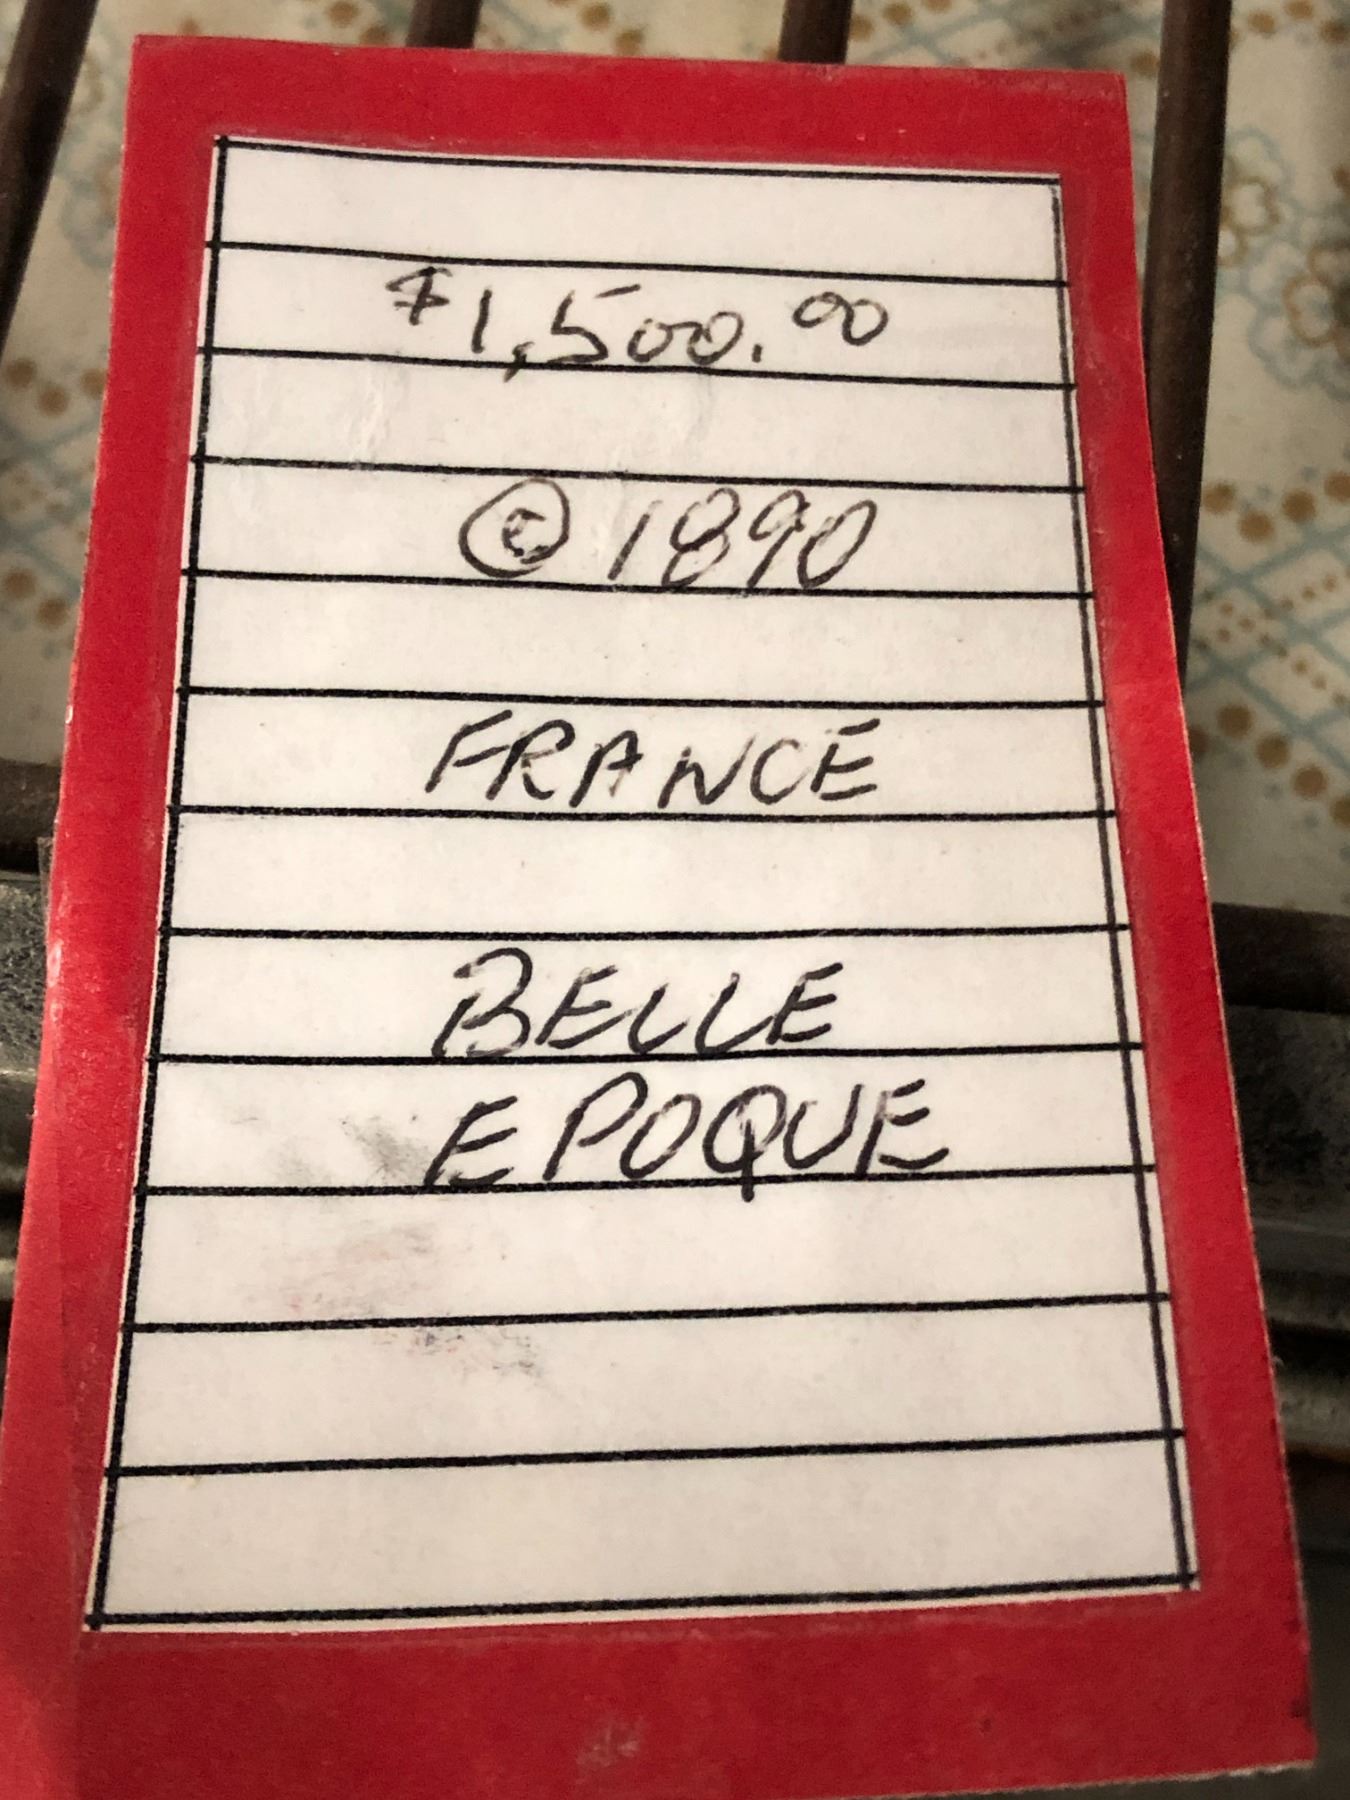 $1,500.00
© 1890
FRANCE
BELLE
EPOQUE